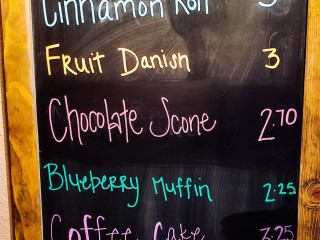 Cinnamon Roll
Fruit Danish 3
Chocolate Scone 2.70
Blueberry Muffin 2.25
Coffee Cake 3.25